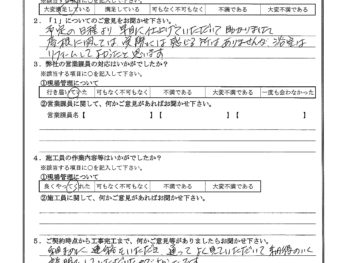 ※該当する項目に○を記入して下さい。
大変満足している 満足している 可も不可も無く 不満である 大変不満である
2．「1」についてのご意見をお聞かせ下さい。
予定の日程より 早目に仕上げていただいて 助かりました
屋根に関しては 実際には感じる所はありませんが 浴室は
リフォームして よかったと思います
3．弊社の営業課員の対応はいかがでしたか？
※該当する項目に○を記入して下さい。
①現場管理について
行き届いてた 可も不可も無く 不満である 大変不満である 一度も会わなかった
②営業課員に関して、何かご意見があればお聞かせ下さい。
営業課員名【 】
4．施工員の作業内容等はいかがでしたか？
※該当する項目に○を記入して下さい。
①現場管理について
良くやってくれた 可も不可も無く 不満である 大変不満である
②施工員に関して、何かご意見があればお聞かせ下さい。
5．ご契約時点から工事完工まで、何かご意見等がありましたらお聞かせ下さい。
連絡 いただき 見ていただいて 納得のいく